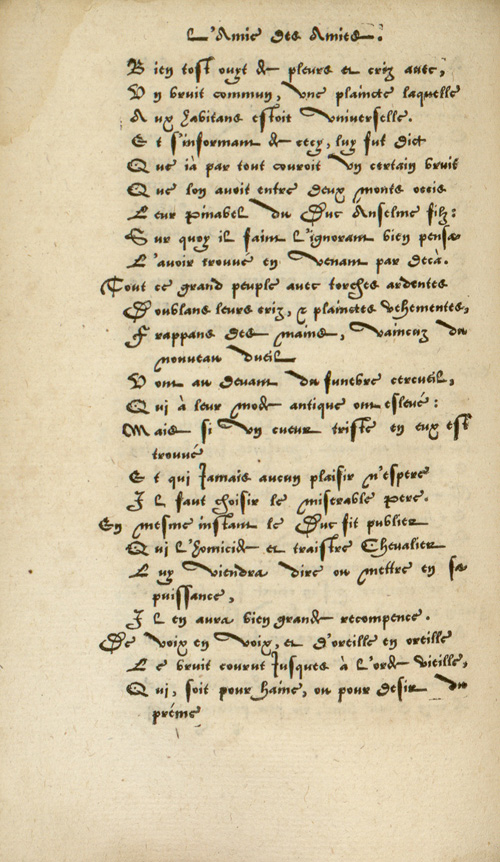 L'Amie des Amies.
Bien tost ouyt de pleurs et criz avec,
Un bruit commun, une plaincte laquelle
Aux habitans estoit universelle.
Et s'informant de cecy, luy fut dict
Que ià par tout couroit un certain bruit
Que lon avoit entre deux monts occis
Leur Pinabel du Duc Anselme filz:
Sur quoy il faint l'ignorant bien pensa
L'avoir trouvé en venant par deçà.
Tout ce grand peuple avec torches ardentes
Doublans leurs criz, & plainctes vehementes,
Frappans des mains, vaincuz du
nouveau dueil
Vont au devant du funebre cercueil,
Qui à leur mode antique ont eslevé:
Mais si un cueur triste en eux est
trouvé
Et qui Jamais aucun plaisir n'espere
Il faut choisir le miserable pere.
En mesme instant le Duc fit publier
Qui l'homicide et traistre Chevalier
Luy viendra dire ou mettre en sa
puissance,
Il en aura bien grande recompence.
De voix en voix, et d'oreille en oreille
Le bruit courut Jusques à l'orde vieille,
Qui, soit pour haine, ou pour desir du
préme